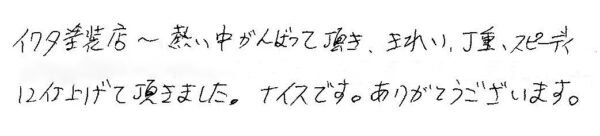 イワタ塗装店～熱い中がんばって頂き、きれい、丁重、スピーディ
に仕上げて頂きました。ナイスです。ありがとうございます。